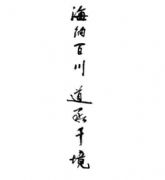 海纳百川 道承千境